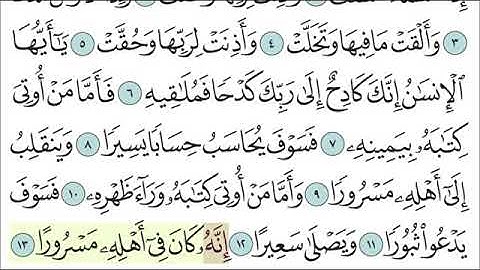 ٣ وَأَلْقَتْ مَا فِيهَا وَتَخَلَّتْ ٤ وَأَذِنَتْ لِرَبِّهَا وَحُقَّتْ ٥ يَٰٓأَيُّهَا
ٱلْإِنسَٰنُ إِنَّكَ كَادِحٌ إِلَىٰ رَبِّكَ كَدْحًا فَمُلَٰقِيهِ ٦ فَأَمَّا مَنْ أُوتِيَ
كِتَٰبَهُۥ بِيَمِينِهِۦ ٧ فَسَوْفَ يُحَاسَبُ حِسَابًا يَسِيرًا ٨ وَيَنقَلِبُ
إِلَىٰٓ أَهْلِهِۦ مَسْرُورًا ٩ وَأَمَّا مَنْ أُوتِيَ كِتَٰبَهُۥ وَرَآءَ ظَهْرِهِۦ ١٠ فَسَوْفَ
يَدْعُوا۟ ثُبُورًا ١١ وَيَصْلَىٰ سَعِيرًا ١٢ إِنَّهُۥ كَانَ فِيٓ أَهْلِهِۦ مَسْرُورًا ١٣